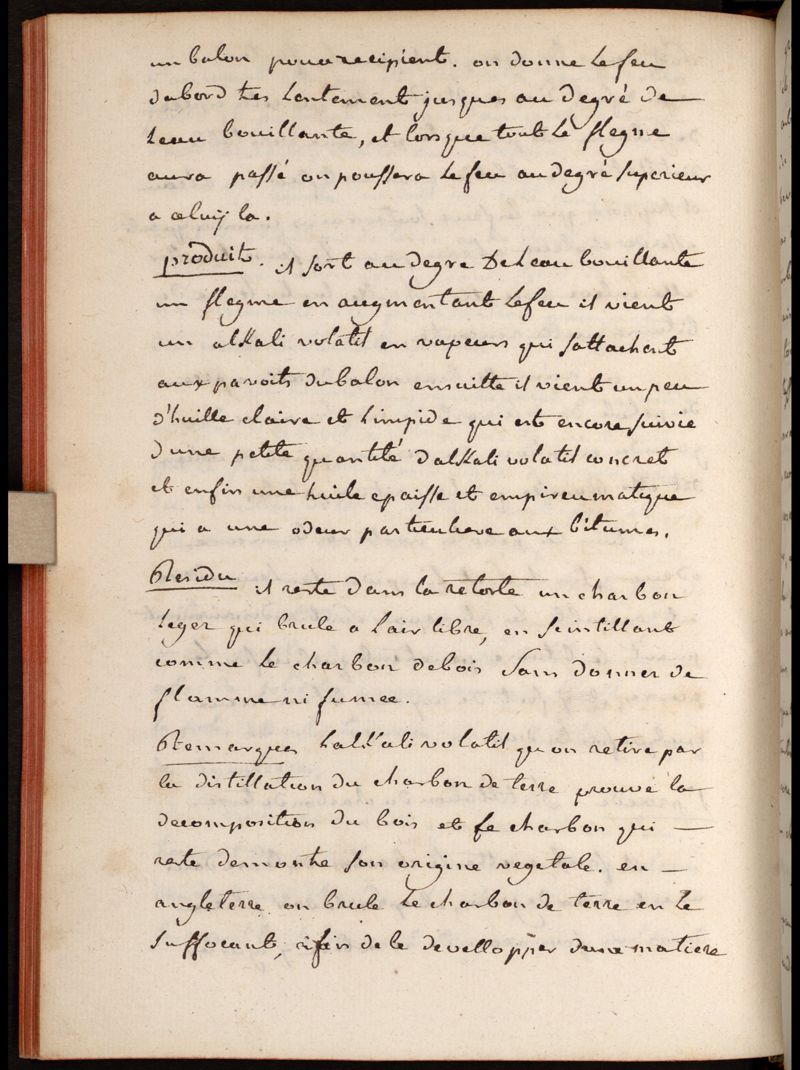 un balon pour recipient. on donne le feu
dabord tres lentement jusques au degré de
leau bouillante, et lorsque tout le flegme
aura passé on poussera le feu au degré superieur
a celuy la.
produit. il sort au degre de leau bouillante
un flegme en augmentant le feu il vient
un alkali volatil en vapeurs qui sattachent
aux paroits du balon ensuitte il vient un peu
d'huille claire et limpide qui est encore suivie
dune petite quantité dalkali volatil concret
et enfin une huile epaisse et empireumatique
qui a une odeur particuliere aux bitumes.
Residu il reste dans la retorte un charbon
leger qui brule a lair libre, en scintillant
comme le charbon de bois sans donner de
flamme ni fumee.
Remarques lalkali volatil qu on retire par
la distillation du charbon de terre prouve la
decomposition du bois et le charbon qui —
reste demontre son origine vegetale. en —
angleterre on brule le charbon de terre en le
suffocant, afin de le devellopper dune matiere